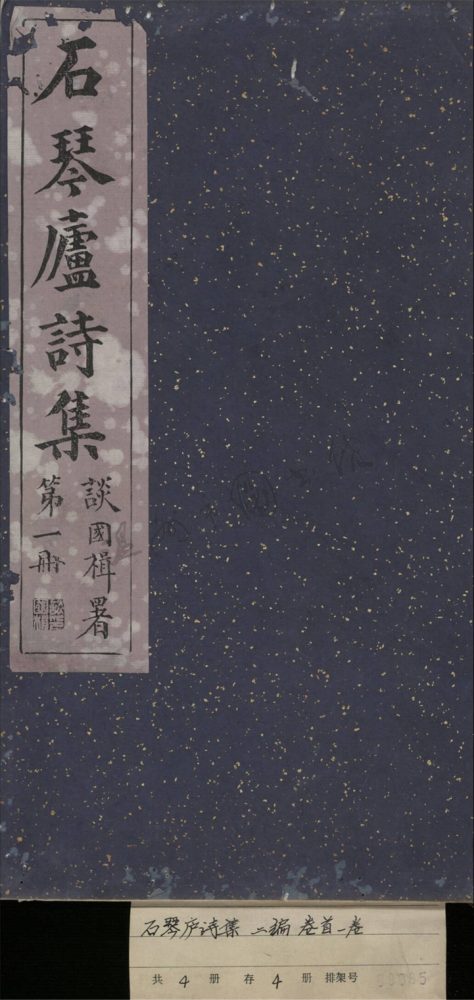 石琴廬詩集
談國楫署
第一册
石琴庐诗集 二编 卷首一卷
共 4 册 存 4 册 排架号